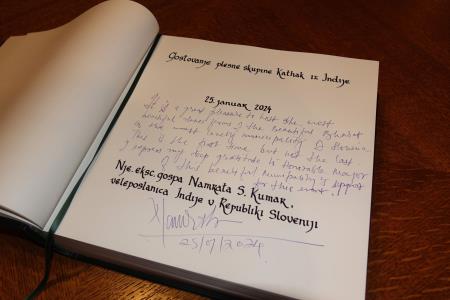 Gostovanje plesne skupine Kathak iz Indije
25. januar 2024
It is a great pleasure to host the most
beautiful dance form of the beautiful
in the most lovely municipality of Slovenia.
This is the first time but not the last
I express my deep gratitude to Honorable Mayor
of this beautiful municipality
for this event.
Nj. eksc. gospa Namrata S. Kumar,
veleposlanica Indije v Republiki Sloveniji
25/01/2024